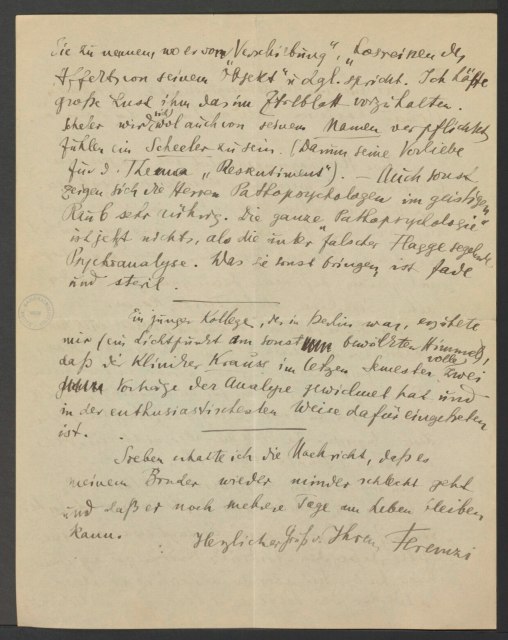 Sie zu nennen, wo er von „Verschiebung", „Losreissen des
Affekts von seinem Objekt" u. dgl. spricht. Ich hätte
große Lust ihm das im Ztrlblatt vorzuhalten.
Scheler wird sich wol auch von seinem Namen verpflichtet
fühlen ein Scheeler zu sein. (Darum seine Vorliebe
für d. Thema „Ressentiment"). – Auch sonst
zeigen sich die Herren Pathopsychologen im geistigen
Raub sehr rührig. Die ganze „Pathopsychologie"
ist jetzt nichts, als die unter falscher Flagge segelnde
Psychoanalyse. Was sie sonst bringen, ist fade
und steril.
Ein junger Kollege, der in Berlin war, erzählte
mir (ein Lichtpunkt am sonst bewölkten Himmel),
daß der Kliniker Krauss im letzten Semester zwei
volle Vorträge der Analyse gewidmet hat und
in der enthusiastischesten Weise dafür eingetreten
ist.
Soeben erhalte ich die Nachricht, daß es
meinem Bruder wieder minder schlecht geht
und daß er noch mehrere Tage am Leben bleiben
kann.
Herzlichen Gruß v. Ihrem Ferenczi